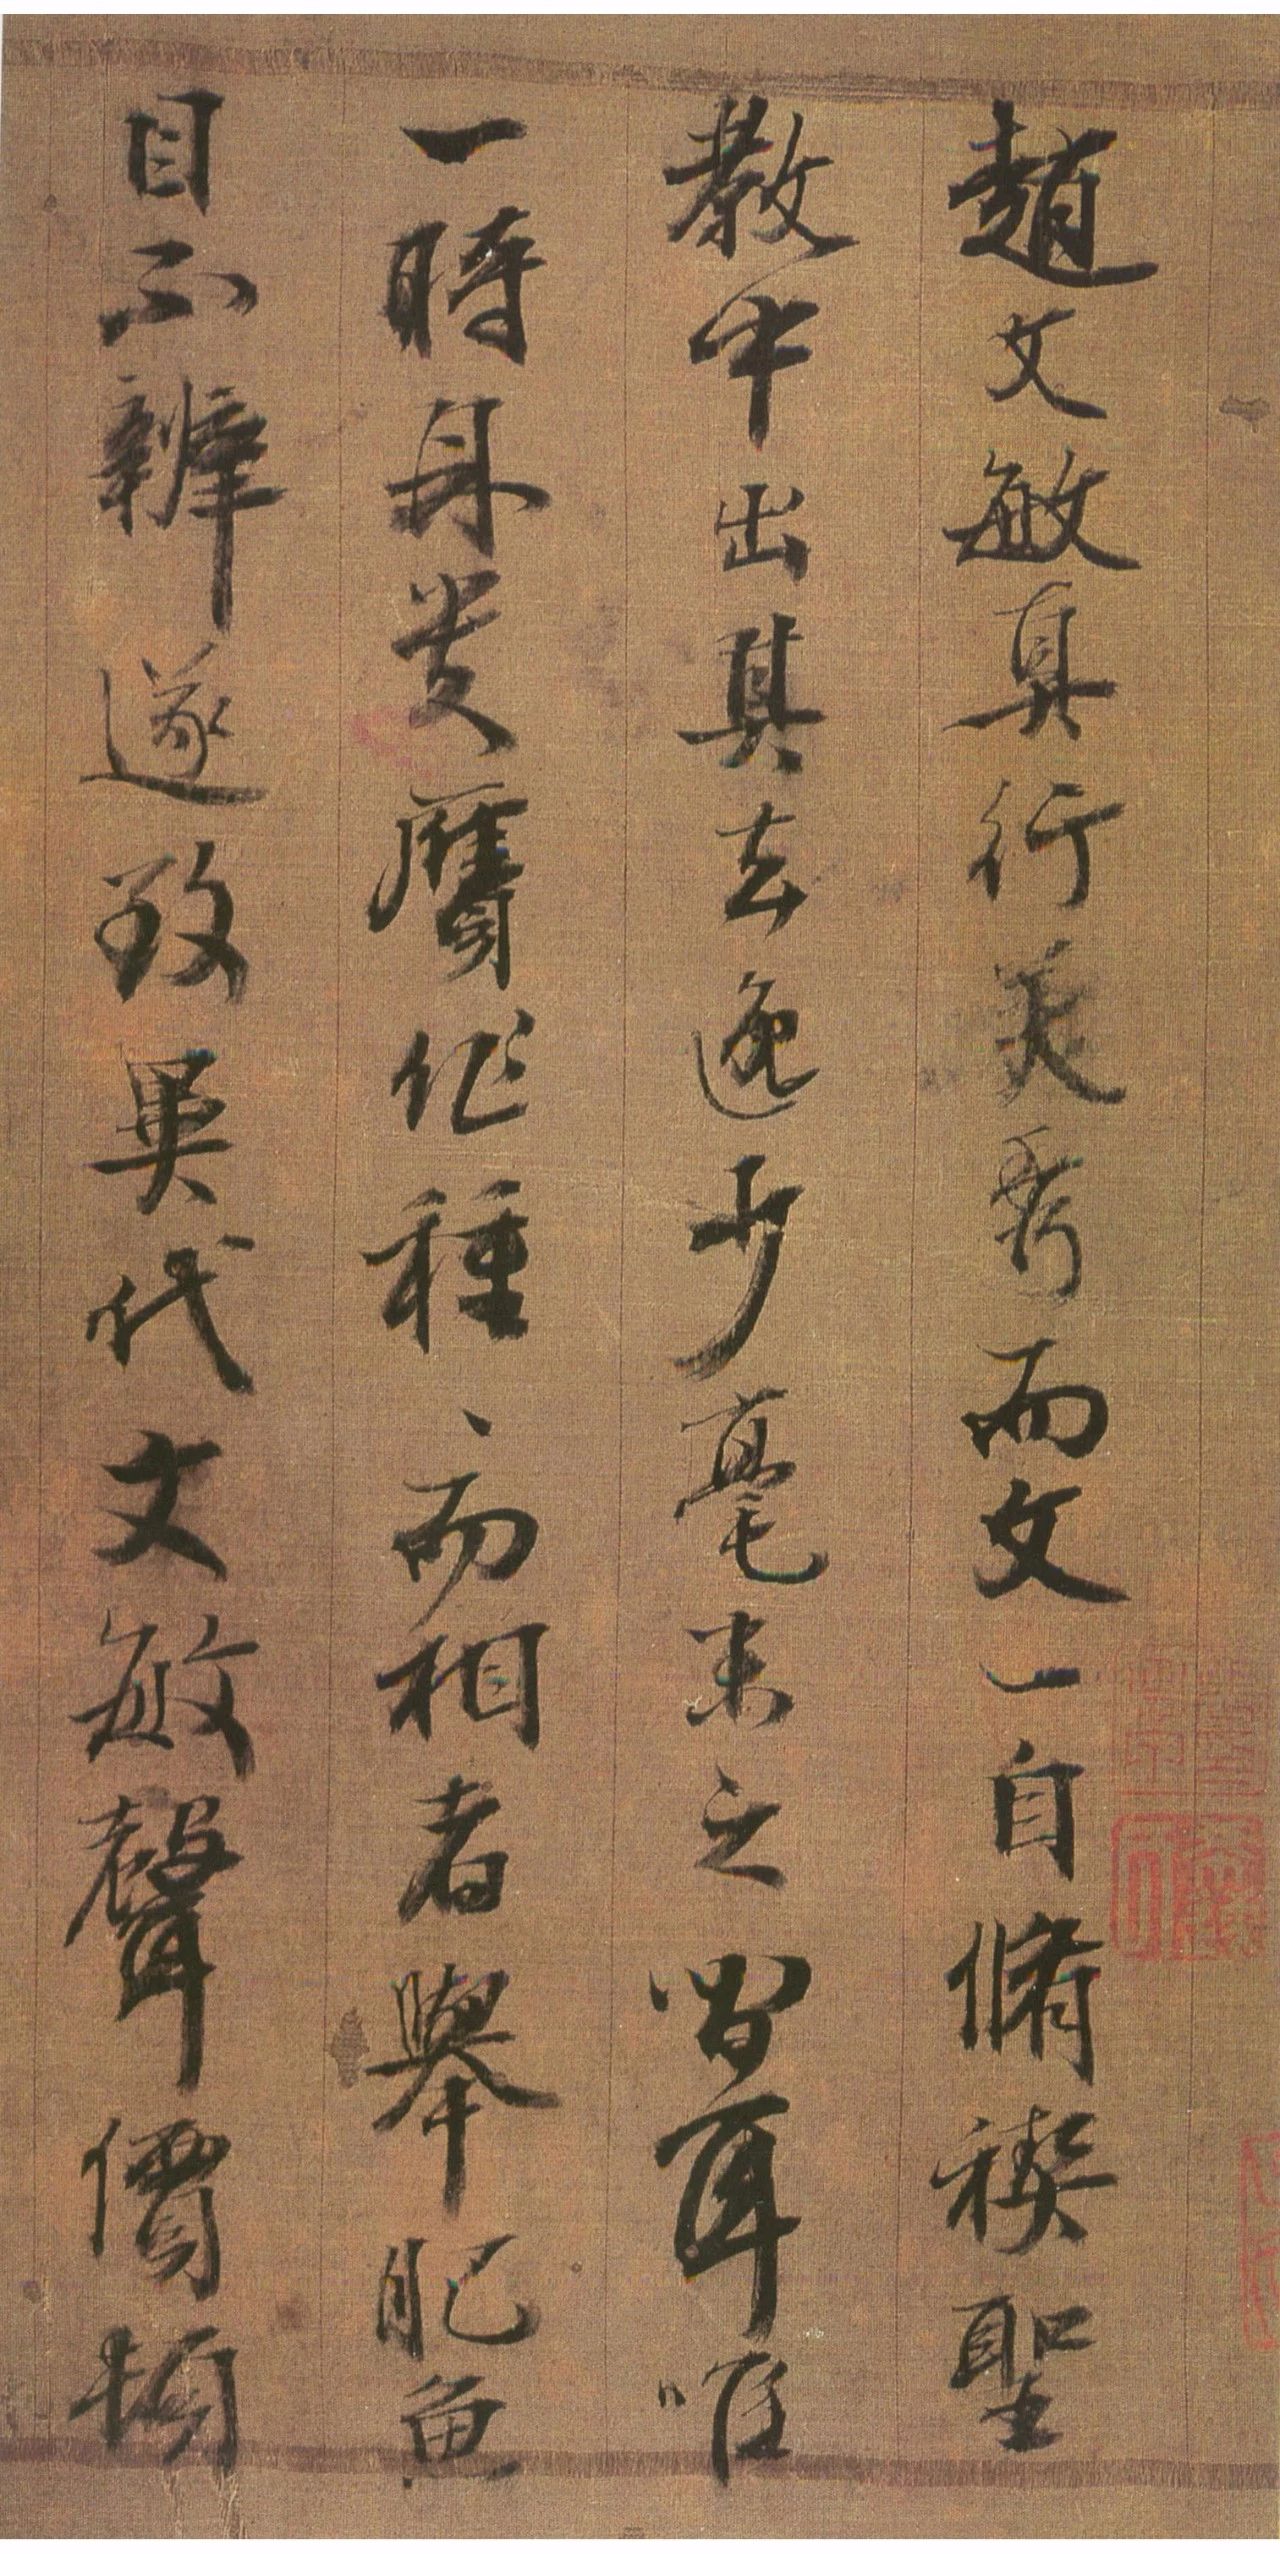 趙文敏真行美秀而文一自脩禊聖
教中出其去逸少毫末之間耳唯
一時身貴贗作種〻而相者舉肥魚
目不辨遂致異代文敏聲價頓